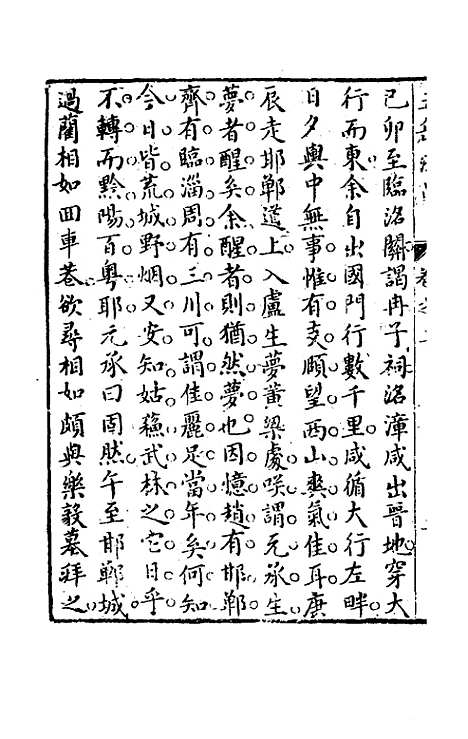 己卯至臨洺關謁冉子祠洺漳咸出晉地穿大
行而東余自出國門行數千里咸循大行左畔
日夕輿中無事惟有支頤望西山爽氣佳耳庚
辰走邯鄲道上入盧生夢黃粱處咲謂元承生
夢者醒矣余醒者則猶然夢也因憶趙有邯鄲
齊有臨淄周有三川可謂佳麗足當年矣何知
今日皆荒城野烟又安知姑蘇武林之它日乎
不轉而黔陽百粵耶元承曰固然午至邯鄲城
過藺相如回車巷欲尋相如頗與樂毅墓拜之